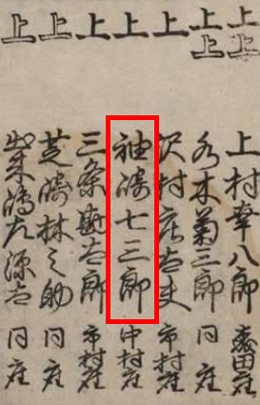 上上 上村幸八郎 森田座
上上 水木菊三郎 同座
上 沢村 市村座
上 袖崎七三郎 中村座
上 三条勘太郎 市村座
上 芝崎林之助 同座
上 出来嶋 同座